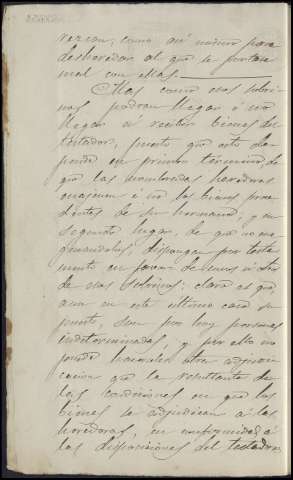 verzan; como asi mismo para
desheredar al que se portase
mal con ellas.
Mas como esas sobri-
nas podran llegar ó no
llegar á recibir bienes del
testador, puesto que esto de-
pende en primer término de
que las nombradas herederas
enajenen ó no los bienes proce-
dentes de su hermano, y en
segundo lugar, de que no ena-
genandolos, dispongan por testa-
mento en favor de unos ú otros
de esos sobrinos: claro es que
aun en este ultimo caso su-
puesto, son por hoy personas
indeterminadas, y por ello no
puede hacerse otra adjudi-
cacion que la resultante de
las condiciones en que los
bienes se adjudican á las
herederas, en conformidad á
las disposiciones del testador